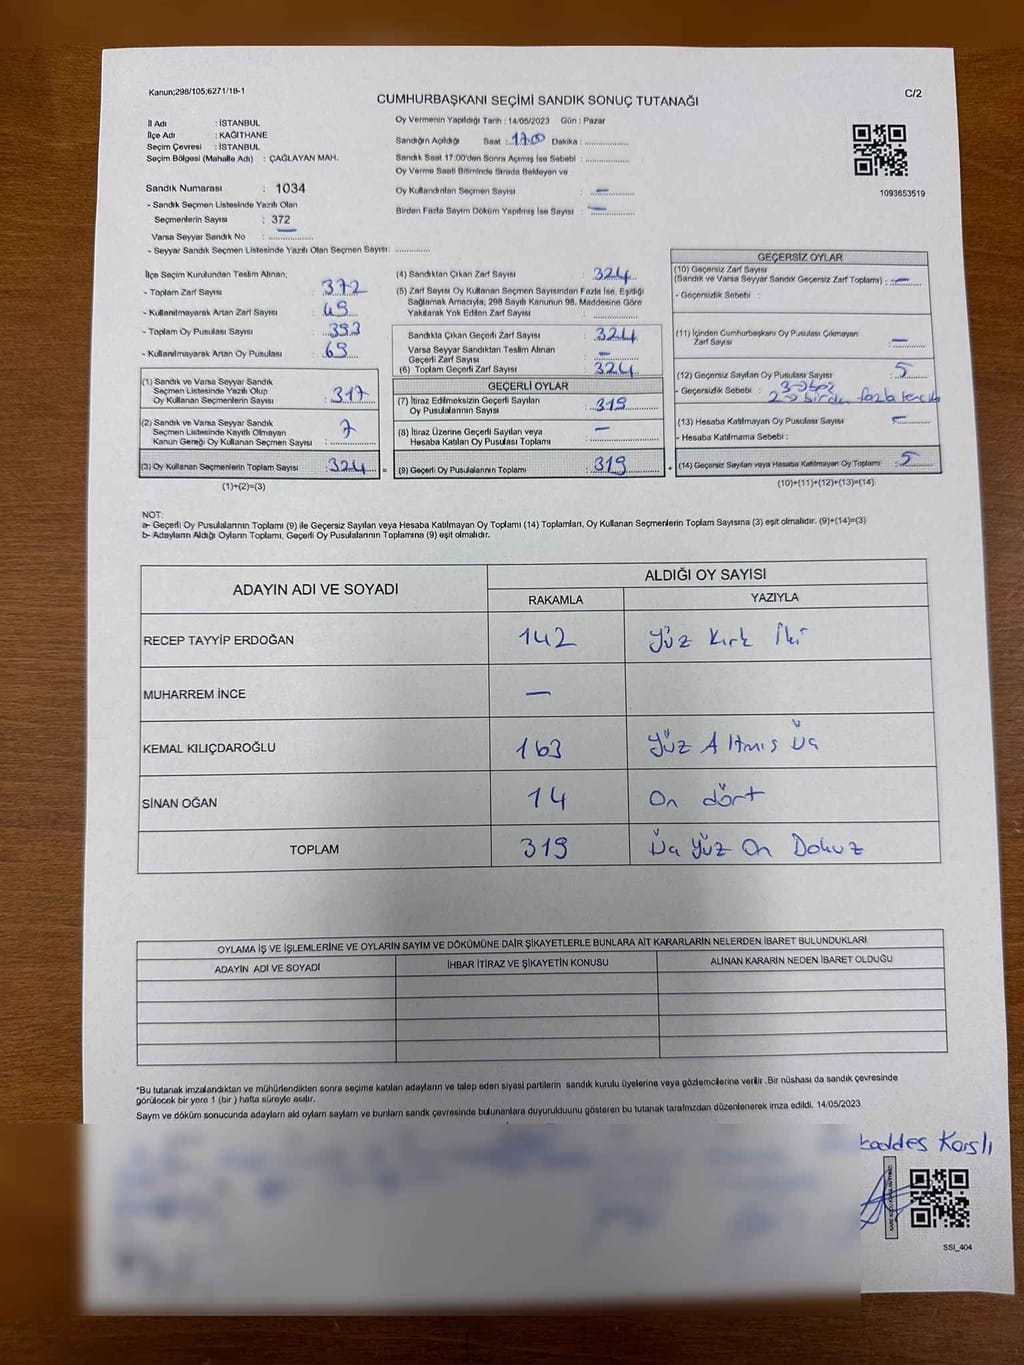 Kanun;298/105;6271/18-1
CUMHURBAŞKANI SEÇİMİ SANDIK SONUÇ TUTANAĞI
C/2
İl Adı : İSTANBUL
İlçe Adı : KAĞITHANE
Seçim Çevresi : İSTANBUL
Seçim Bölgesi (Mahalle Adı) : ÇAĞLAYAN MAH.
Sandık Numarası : 1034
- Sandık Seçmen Listesinde Yazılı Olan
Seçmenlerin Sayısı : 372
Varsa Seyyar Sandık No : —
- Seyyar Sandık Seçmen Listesinde Yazılı Olan Seçmen Sayısı: ..............
Oy Vermenin Yapıldığı Tarih : 14/05/2023 Gün : Pazar
Sandığın Açıldığı Saat : 17.00 Dakika : ..............
Sandık Saat 17:00'den Sonra Açımış İse Sebebi : ..............
Oy Verme Saati Bitiminde Sırada Bekleyen ve
Oy Kullandırılan Seçmen Sayısı : —
Birden Fazla Sayım Döküm Yapılmış İse Sayısı : —
1093653519
İlçe Seçim Kurulundan Teslim Alınan;
- Toplam Zarf Sayısı : 372
- Kullanılmayarak Artan Zarf Sayısı : 49
- Toplam Oy Pusulası Sayısı : 393
- Kullanılmayarak Artan Oy Pusulası : 69
(1) Sandık ve Varsa Seyyar Sandık
Seçmen Listesinde Yazılı Olup
Oy Kullanan Seçmenlerin Sayısı : 317
(2) Sandık ve Varsa Seyyar Sandık
Seçmen Listesinde Kayıtlı Olmayan
Kanun Gereği Oy Kullanan Seçmen Sayısı : 7
(3) Oy Kullanan Seçmenlerin Toplam Sayısı : 324 =
(1)+(2)=(3)
(4) Sandıktan Çıkan Zarf Sayısı : 324
(5) Zarf Sayısı Oy Kullanan Seçmen Sayısından Fazla İse, Eşitliği
Sağlamak Amacıyla; 298 Sayılı Kanunun 98. Maddesine Göre
Yakılarak Yok Edilen Zarf Sayısı : ..............
Sandıkta Çıkan Geçerli Zarf Sayısı : 324
Varsa Seyyar Sandıktan Teslim Alınan
Geçerli Zarf Sayısı : —
(6) Toplam Geçerli Zarf Sayısı : 324
GEÇERLİ OYLAR
(7) İtiraz Edilmeksizin Geçerli Sayılan
Oy Pusulalarının Sayısı : 319
(8) İtiraz Üzerine Geçerli Sayılan veya
Hesaba Katılan Oy Pusulası Toplamı : —
(9) Geçerli Oy Pusulalarının Toplamı : 319 +
GEÇERSİZ OYLAR
(10) Geçersiz Zarf Sayısı
(Sandık ve Varsa Seyyar Sandık Geçersiz Zarf Toplamı) : —
- Geçersizlik Sebebi :
(11) İçinden Cumhurbaşkanı Oy Pusulası Çıkmayan
Zarf Sayısı : —
(12) Geçersiz Sayılan Oy Pusulası Sayısı : 5
- Geçersizlik Sebebi : 3 → boş
2 → birden fazla tercih
(13) Hesaba Katılmayan Oy Pusulası Sayısı :
- Hesaba Katılmama Sebebi :
(14) Geçersiz Sayılan veya Hesaba Katılmayan Oy Toplamı : 5
(10)+(11)+(12)+(13)=(14)
NOT:
a- Geçerli Oy Pusulalarının Toplamı (9) ile Geçersiz Sayılan veya Hesaba Katılmayan Oy Toplamı (14) Toplamları, Oy Kullanan Seçmenlerin Toplam Sayısına (3) eşit olmalıdır. (9)+(14)=(3)
b- Adayların Aldığı Oyların Toplamı, Geçerli Oy Pusulalarının Toplamına (9) eşit olmalıdır.
ADAYIN ADI VE SOYADI ALDIĞI OY SAYISI
RAKAMLA YAZIYLA
RECEP TAYYİP ERDOĞAN 142 Yüz Kırk İki
MUHARREM İNCE —
KEMAL KILIÇDAROĞLU 163 Yüz Altmış Üç
SİNAN OĞAN 14 On dört
TOPLAM 319 Üç Yüz On Dokuz
OYLAMA İŞ VE İŞLEMLERİNE VE OYLARIN SAYIM VE DÖKÜMÜNE DAİR ŞİKAYETLERLE BUNLARA AİT KARARLARIN NELERDEN İBARET BULUNDUKLARI
ADAYIN ADI VE SOYADI İHBAR İTİRAZ VE ŞİKAYETİN KONUSU ALINAN KARARIN NEDEN İBARET OLDUĞU
*Bu tutanak imzalandıktan ve mühürlendikten sonra seçime katılan adayların ve talep eden siyasi partilerin sandık kurulu üyelerine veya gözlemcilerine verilir .Bir nüshası da sandık çevresinde
görülecek bir yere 1 (bir ) hafta süreyle asılır.
Sayım ve döküm sonucunda adayların ald oyların sayıları ve bunların sandık çevresinde bulunanlara duyurulduunu gösteren bu tutanak tarafımızdan düzenlenerek imza edildi. 14/05/2023
Karslı
SSI_404